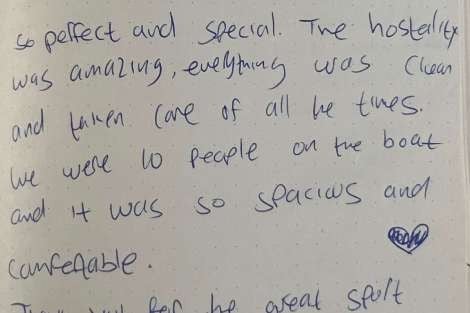 so perfect and special. The hostality
was amazing, everything was clean
and taken care of all he times.
We were 10 people on the boat
and it was so spacius and
comfetable.
for he great